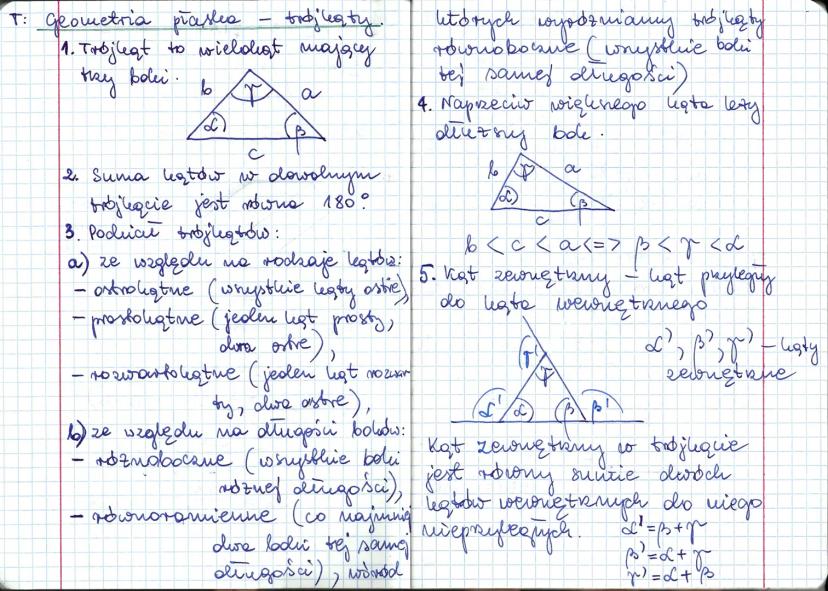 T: Geometria płaska – trójkąty.
1. Trójkąt to wielokąt mający
trzy boki.
b
γ
a
α
β
c
2. Suma kątów w dowolnym
trójkącie jest równa 180°
3. Podział trójkątów:
a) ze względu na rodzaje kątów:
– ostrokątne (wszystkie kąty ostre)
– prostokątne (jeden kąt prosty,
dwa ostre),
– rozwartokątne (jeden kąt rozwar-
ty, dwa ostre),
b) ze względu na długości boków:
– różnoboczne (wszystkie boki
różnej długości),
– równoramienne (co najmniej
dwa boki tej samej
długości), wśród
których wyróżniamy trójkąty
równoboczne (wszystkie boki
tej samej długości)
4. Naprzeciw większego kąta leży
dłuższy bok.
b
γ
a
α
β
c
b < c < a <=> β < γ < α
5. Kąt zewnętrzny – kąt przyległy
do kąta wewnętrznego
γ'
γ
α'
α
β
β'
α', β', γ' – kąty
zewnętrzne
Kąt zewnętrzny w trójkącie
jest równy sumie dwóch
kątów wewnętrznych do niego
nieprzyległych.
α' = β + γ
β' = α + γ
γ' = α + β